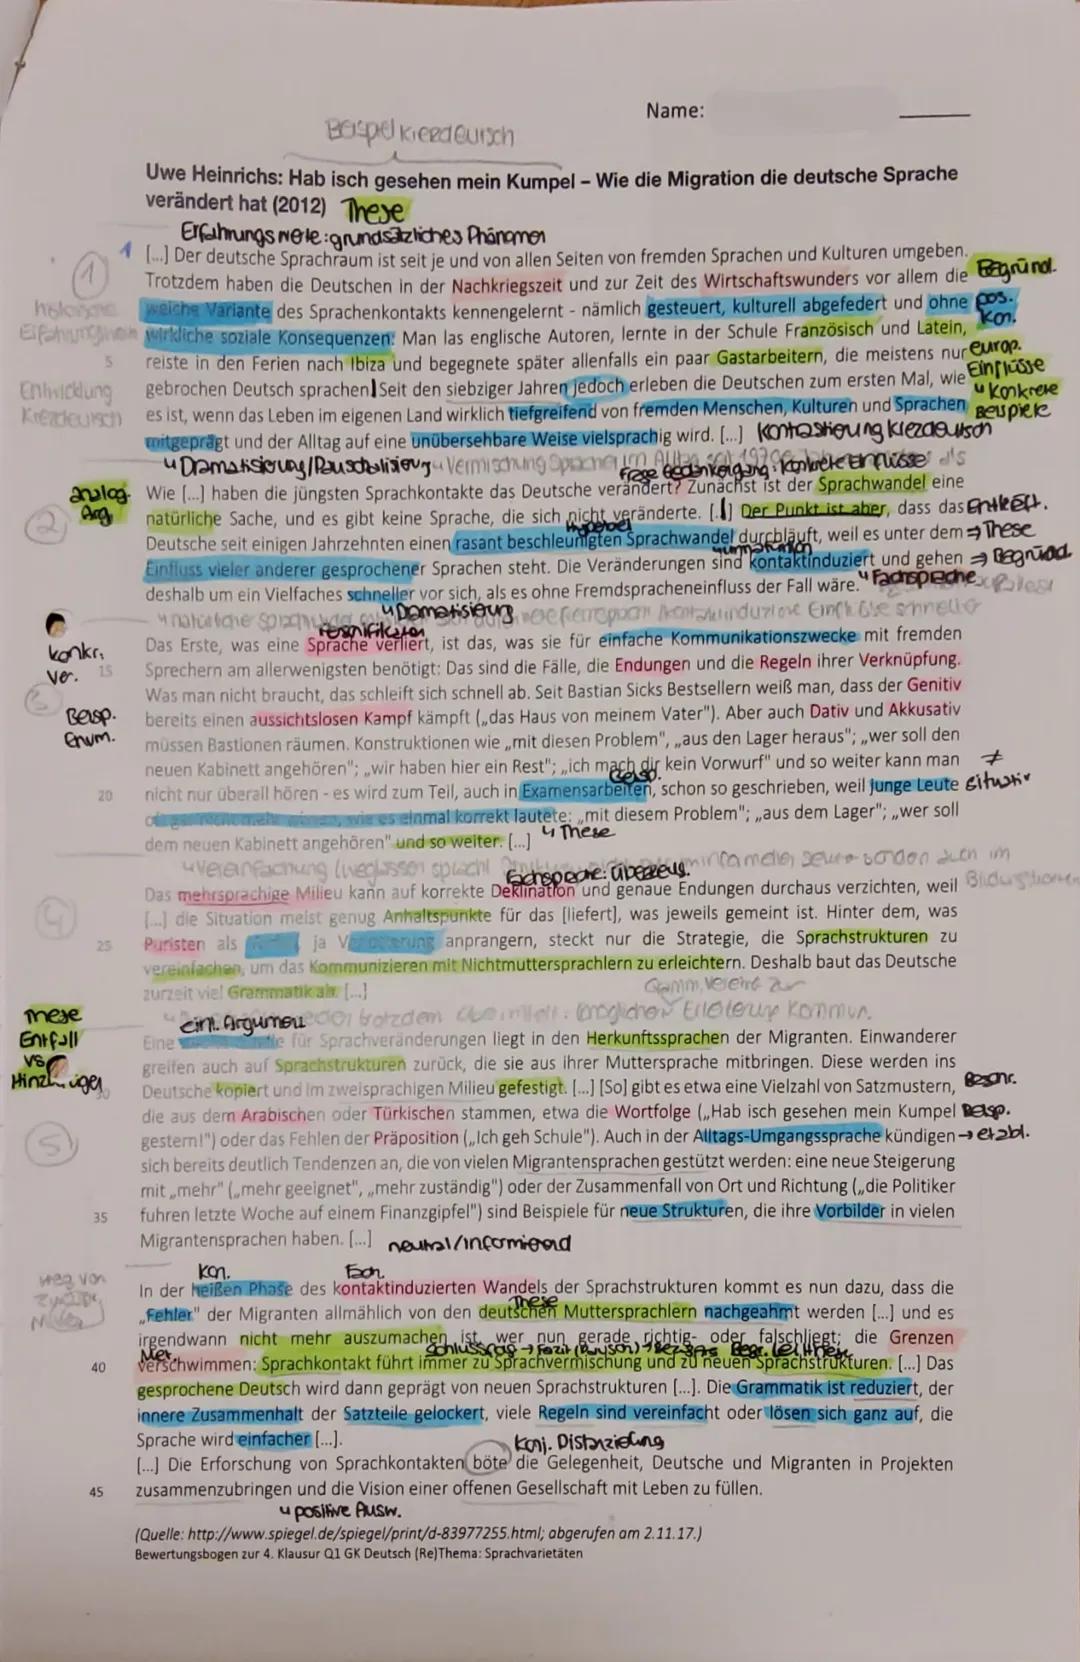 Name:
Beispiel Kiezdeutsch
Uwe Heinrichs: Hab isch gesehen mein Kumpel – Wie die Migration die deutsche Sprache
verändert hat (2012) These
Erfahrungswerte: grundsätzliches Phänomen
1 [...] Der deutsche Sprachraum ist seit je und von allen Seiten von fremden Sprachen und Kulturen umgeben.
Trotzdem haben die Deutschen in der Nachkriegszeit und zur Zeit des Wirtschaftswunders vor allem die Begründ.
weiche Variante des Sprachenkontakts kennengelernt - nämlich gesteuert, kulturell abgefedert und ohne pos.
Kon.
wirkliche soziale Konsequenzen: Man las englische Autoren, lernte in der Schule Französisch und Latein,
5 reiste in den Ferien nach Ibiza und begegnete später allenfalls ein paar Gastarbeitern, die meistens nur europ.
Einflüsse
Entwicklung gebrochen Deutsch sprachen. Seit den siebziger Jahren jedoch erleben die Deutschen zum ersten Mal, wie Konkrete
Kiezdeutsch es ist, wenn das Leben im eigenen Land wirklich tiefgreifend von fremden Menschen, Kulturen und Sprachen Beispiele
mitgeprägt und der Alltag auf eine unübersehbare Weise vielsprachig wird. [...] Kontrastierung Kiezdeutsch
Dramatisierung/Pauschalisierung Vermischung Sprache im Alltag seit 1970er
Frage Gedankengang: Konkrete Einflüsse
analog. Arg. Wie [...] haben die jüngsten Sprachkontakte das Deutsche verändert? Zunächst ist der Sprachwandel eine
2 natürliche Sache, und es gibt keine Sprache, die sich nicht veränderte. [...] Der Punkt ist aber, dass das Entkräft.
Hyperbel
Deutsche seit einigen Jahrzehnten einen rasant beschleunigten Sprachwandel durchläuft, weil es unter dem → These
Einfluss vieler anderer gesprochener Sprachen steht. Die Veränderungen sind kontaktinduziert und gehen ⇒ Begründ.
deshalb um ein Vielfaches schneller vor sich, als es ohne Fremdspracheneinfluss der Fall wäre. Fachsprache
Dramatisierung
Personifikation
konkr. Das Erste, was eine Sprache verliert, ist das, was sie für einfache Kommunikationszwecke mit fremden
Ver. 15 Sprechern am allerwenigsten benötigt: Das sind die Fälle, die Endungen und die Regeln ihrer Verknüpfung.
3 Was man nicht braucht, das schleift sich schnell ab. Seit Bastian Sicks Bestsellern weiß man, dass der Genitiv
Beisp. bereits einen aussichtslosen Kampf kämpft („das Haus von meinem Vater"). Aber auch Dativ und Akkusativ
Enum. müssen Bastionen räumen. Konstruktionen wie „mit diesen Problem", „aus den Lager heraus"; „wer soll den
neuen Kabinett angehören"; „wir haben hier ein Rest"; „ich mach dir kein Vorwurf" und so weiter kann man ≠
Beisp.
20 nicht nur überall hören - es wird zum Teil, auch in Examensarbeiten, schon so geschrieben, weil junge Leute situativ
wie es einmal korrekt lautete: „mit diesem Problem"; „aus dem Lager"; „wer soll
dem neuen Kabinett angehören" und so weiter. [...] These
Vereinfachung
Fachsprache: Überzeug.
Das mehrsprachige Milieu kann auf korrekte Deklination und genaue Endungen durchaus verzichten, weil
4 [...] die Situation meist genug Anhaltspunkte für das [liefert], was jeweils gemeint ist. Hinter dem, was
25 Puristen als ja anprangern, steckt nur die Strategie, die Sprachstrukturen zu
vereinfachen, um das Kommunizieren mit Nichtmuttersprachlern zu erleichtern. Deshalb baut das Deutsche
zurzeit viel Grammatik ab. [...]
einl. Argument
These Eine für Sprachveränderungen liegt in den Herkunftssprachen der Migranten. Einwanderer
Entfall greifen auch auf Sprachstrukturen zurück, die sie aus ihrer Muttersprache mitbringen. Diese werden ins
vs
30 Deutsche kopiert und im zweisprachigen Milieu gefestigt. [...] [So] gibt es etwa eine Vielzahl von Satzmustern, Beschr.
die aus dem Arabischen oder Türkischen stammen, etwa die Wortfolge („Hab isch gesehen mein Kumpel Beisp.
5 gestern!") oder das Fehlen der Präposition („Ich geh Schule"). Auch in der Alltags-Umgangssprache kündigen → etabl.
sich bereits deutlich Tendenzen an, die von vielen Migrantensprachen gestützt werden: eine neue Steigerung
mit „mehr" („mehr geeignet", „mehr zuständig") oder der Zusammenfall von Ort und Richtung („die Politiker
35 fuhren letzte Woche auf einem Finanzgipfel") sind Beispiele für neue Strukturen, die ihre Vorbilder in vielen
Migrantensprachen haben. [...] neutral/informierend
Kon.
In der heißen Phase des kontaktinduzierten Wandels der Sprachstrukturen kommt es nun dazu, dass die
These
„Fehler" der Migranten allmählich von den deutschen Muttersprachlern nachgeahmt werden [...] und es
irgendwann nicht mehr auszumachen ist, wer nun gerade richtig- oder falschliegt; die Grenzen
Met.
40 verschwimmen: Sprachkontakt führt immer zu Sprachvermischung und zu neuen Sprachstrukturen. [...] Das
gesprochene Deutsch wird dann geprägt von neuen Sprachstrukturen [...]. Die Grammatik ist reduziert, der
innere Zusammenhalt der Satzteile gelockert, viele Regeln sind vereinfacht oder lösen sich ganz auf, die
Sprache wird einfacher [...].
Konj. Distanzierung
[...] Die Erforschung von Sprachkontakten böte die Gelegenheit, Deutsche und Migranten in Projekten
45 zusammenzubringen und die Vision einer offenen Gesellschaft mit Leben zu füllen.
positive Ausw.
(Quelle: http://www.spiegel.de/spiegel/print/d-83977255.html; abgerufen am 2.11.17.)
Bewertungsbogen zur 4. Klausur Q1 GK Deutsch (Re)Thema: Sprachvarietäten